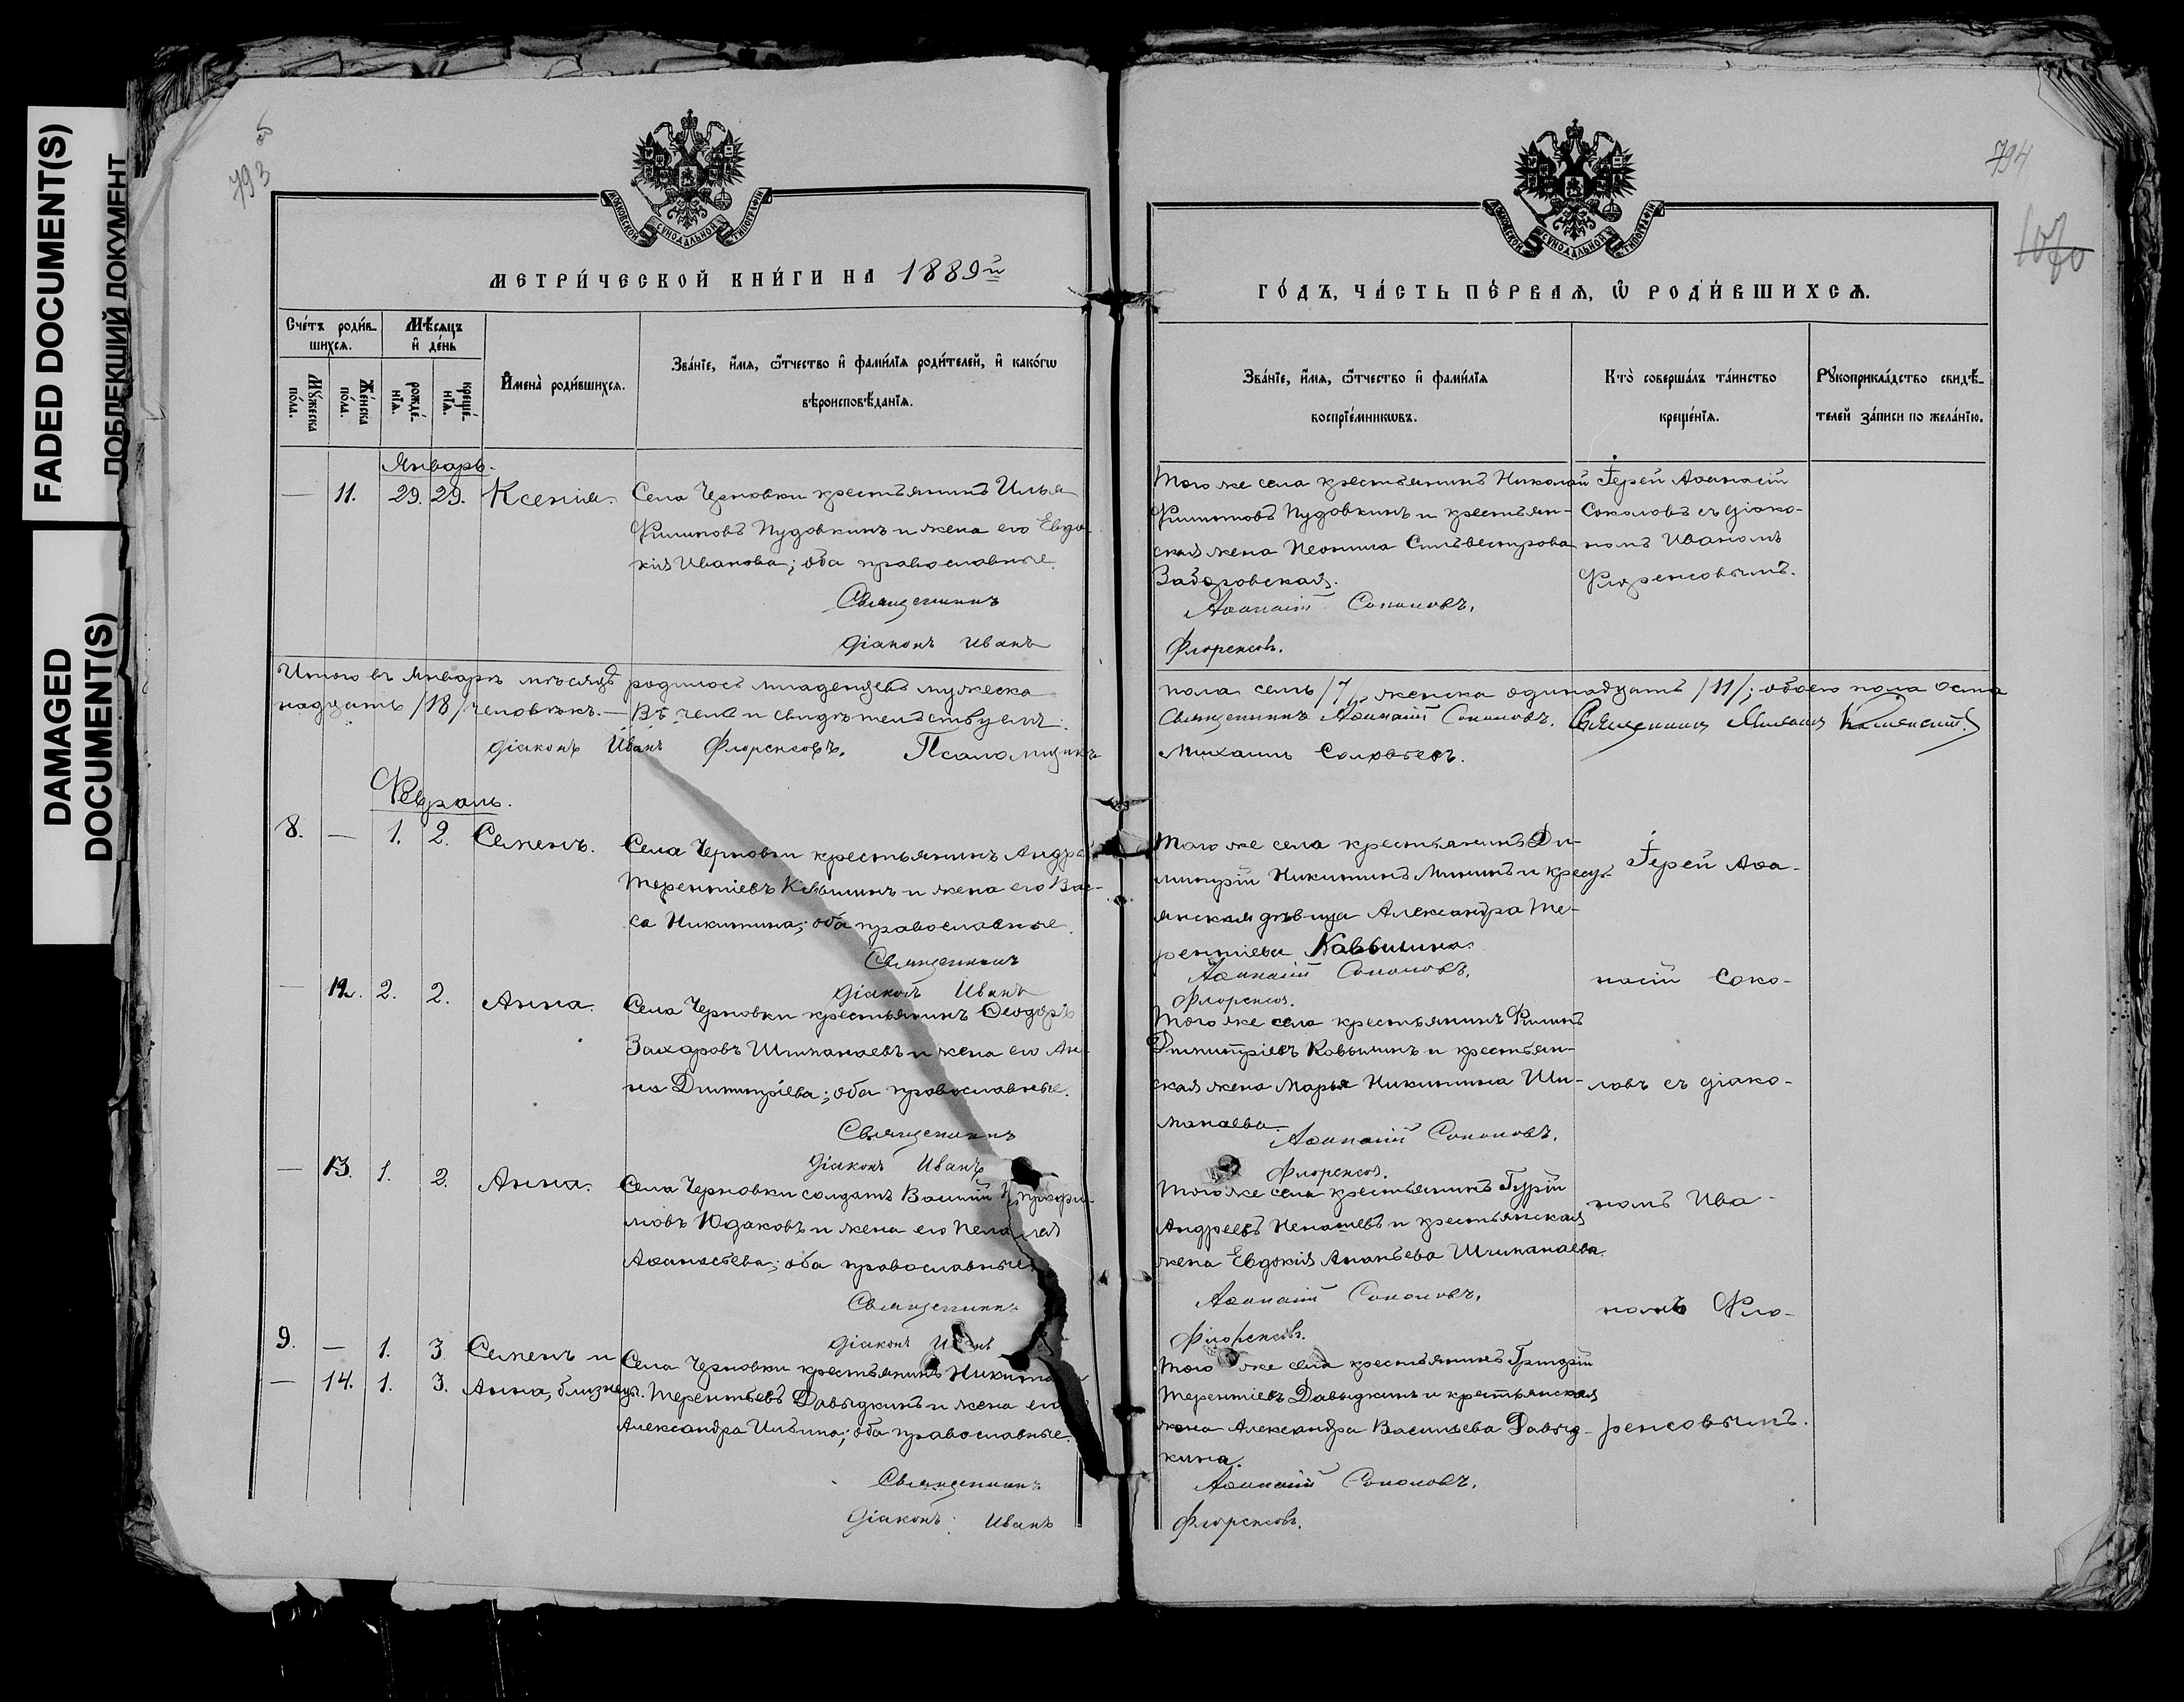 FADED DOCUMENT(S)
ПОБЛЕКШИЙ ДОКУМЕНТ
DAMAGED
DOCUMENT(S)
793
об
МОСКОВСКОЙ СѴНОДАЛЬНОЙ ТИПОГРАФІИ
МЕТРИ́ЧЕСКОЙ КНИ́ГИ НА 1889й
Сче́тъ роди́в-
шихсѧ.
Мѣ́сѧцъ
и҆ де́нь
Мꙋ́жеска
по́ла.
Же́нска
по́ла.
рожде́-
нїѧ.
креще́-
нїѧ.
И҆мена̀ роди́вшихсѧ.
Зва́нїе, и҆́мѧ, ѻ҆́тчество и҆ фами́лїѧ роди́телей, и҆ како́гѡ
вѣроисповѣ́данїѧ.
Январь.
— 11. 29. 29. Ксенія. Села Черновки крестьянинъ Илья
Филиповъ Пудовкинъ и жена его Евдо-
кія Иванова; оба православные.
Священникъ
Діаконъ Иванъ
Итого въ Январѣ мѣсяцѣ родилось младенцевъ мужеска
надцать /18/ человѣкъ.— Въ чемъ и свидѣтельствуемъ:
Діаконъ Иванъ Флоренсовъ. Псаломщикъ
Февраль.
8. — 1. 2. Семенъ. Села Черновки крестьянинъ Андрей
Терентіевъ Ковылинъ и жена его Вас-
са Никитина; оба православные.
Священникъ
Діаконъ Иванъ
— 12. 2. 2. Анна. Села Черновки крестьянинъ Ѳеодоръ
Захаровъ Шиманаевъ и жена его Ан-
на Димитріева; оба православные.
Священникъ
Діаконъ Иванъ
— 13. 1. 2. Анна. Села Черновки солдатъ Василій
мовъ Юдаковъ и жена его Пелагея
Аѳанасьева; оба православные.
Священникъ
Діаконъ Иванъ
9. — 1. 3 Семенъ и Села Черновки крестьянинъ Никита
— 14. 1. 3. Анна, близнецы. Терентьевъ Давыдкинъ и жена его
Александра Ильина; оба православные.
Священникъ
Діаконъ Иванъ
794
1070
МОСКОВСКОЙ СѴНОДАЛЬНОЙ ТИПОГРАФІИ
ГО́ДЪ, ЧА́СТЬ ПЕ́РВАѦ, Ѡ҆ РОДИ́ВШИХСѦ.
Зва́нїе, и҆́мѧ, ѻ҆́тчество и҆ фами́лїѧ
воспрїе́мникѡвъ.
Кто̀ соверша́лъ та́инство
креще́нїѧ.
Рꙋкоприкла́дство свидѣ́-
телей за́писи по жела́нїю.
Того же села крестьянинъ Николай Іерей Аѳанасій
Филиповъ Пудовкинъ и крестьян- Соколовъ съ діако-
ская жена Неонила Сильвестрова номъ Иваномъ
Заборовская. Флоренсовымъ.
Аѳанасій Соколовъ.
Флоренсовъ.
пола семь /7/, женска одинадцать /11/; обоего пола осем
Священникъ Аѳанасій Соколовъ. Священникъ
Михаилъ Соловьевъ.
Того же села крестьянинъ Ди-
митрій Никитинъ Мининъ и кресть-
янская дѣвица Александра Те-
рентіева Ковылина.
Іерей Аѳа-
Аѳанасій Соколовъ.
Флоренсов.
насій Соко-
Того же села крестьянинъ Филипъ
Димитріевъ Ковылинъ и крестьян-
ская жена Марья Никитина Ши-
манаева.
ловъ съ діако-
Аѳанасій Соколовъ.
Флоренсов.
Того же села крестьянинъ Гурій
Андреевъ Ненашевъ и крестьянская
жена Евдокія Ананьева Шиманаева.
номъ Ива-
Аѳанасій Соколовъ.
Флоренсовъ.
номъ Фло-
Того же села крестьянинъ Григорій
Терентіевъ Давыдкинъ и крестьянская
жена Александра Васильева Давыд-
кина.
ренсовымъ.
Аѳанасій Соколовъ.
Флоренсовъ.